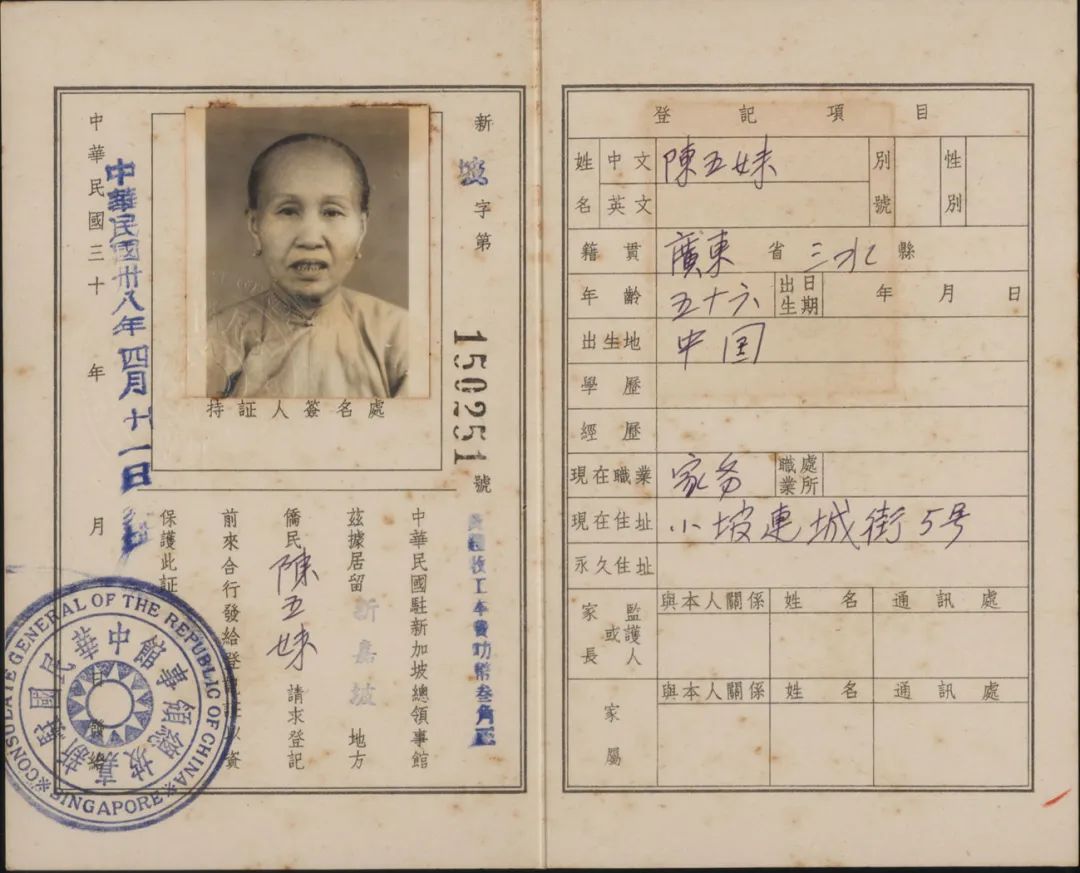 新坡字第150251號
持証人簽名處
中華民國駐新加坡總領事館
茲據居留新嘉坡地方
僑民陳五妹請求登記
前來合行發給登記証以資
保護此証
中華民國三十 年 月 日發給
中華民國卅八年四月十一日
CONSULATE GENERAL OF THE REPUBLIC OF CHINA
SINGAPORE
中華民國駐新嘉坡總領事館
登記項目
姓名 中文 陳五妹 別號 性別
英文
籍貫 廣東省三水縣
年齡 五十六 出生日期 年 月 日
出生地 中国
學歷
經歷
現在職業 家务 職業處所
現在住址 小坡連城街5号
永久住址
家長或監護人 與本人關係 姓名 通訊處
家屬 與本人關係 姓名 通訊處